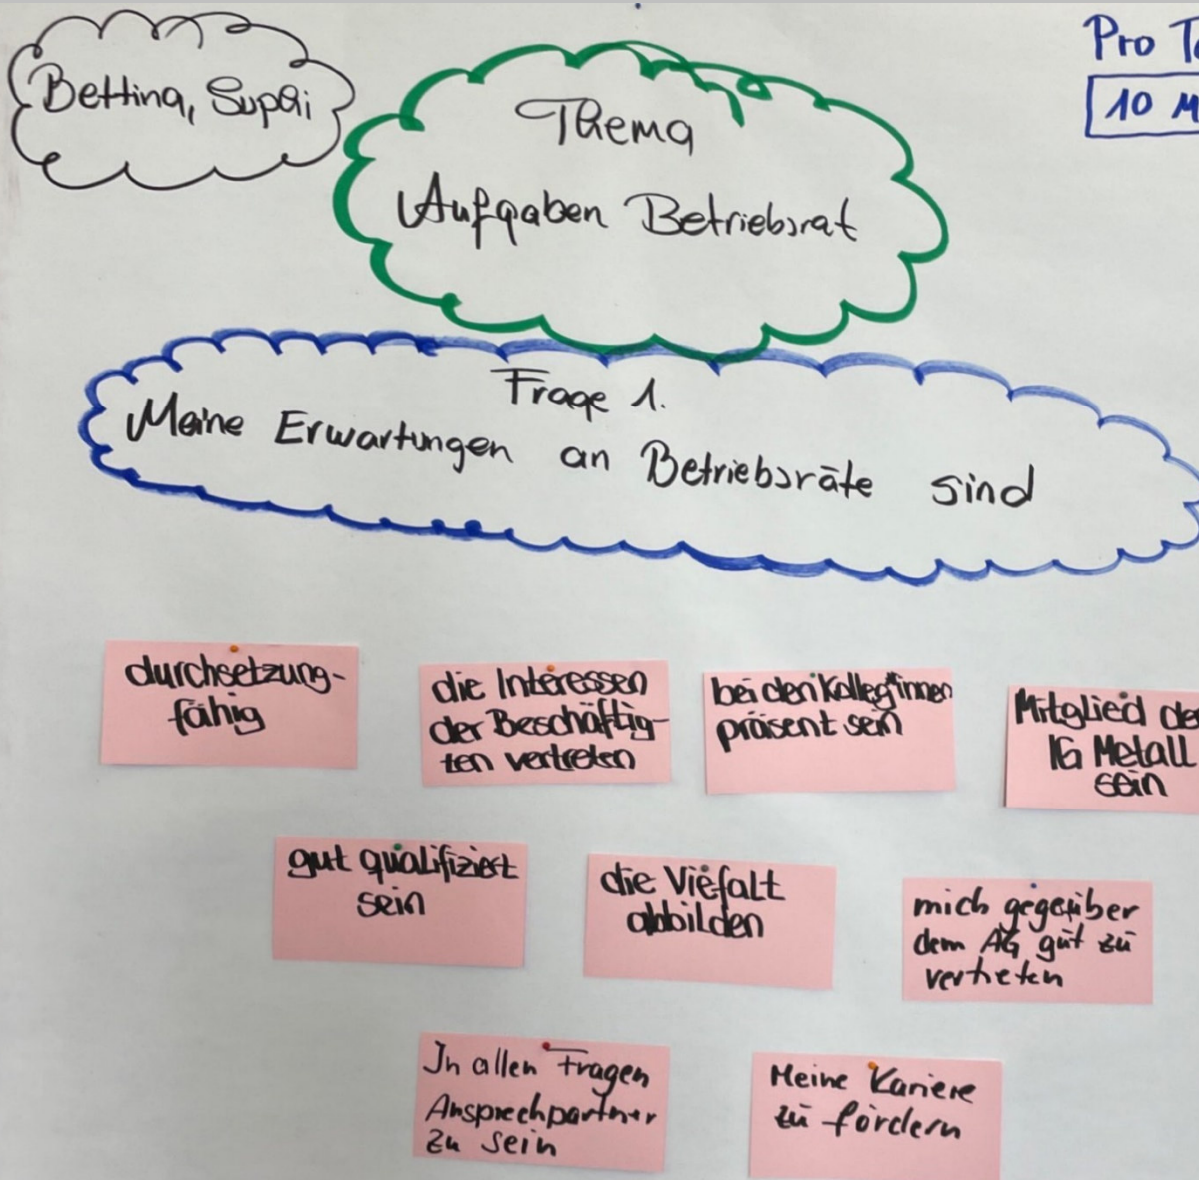 Bettina, Supai
Thema
Aufgaben Betriebsrat
Pro
10
Frage 1.
Meine Erwartungen an Betriebsräte sind
durchsetzung-
fähig
die Interessen
der Beschäftig-
ten vertreten
bei den Kolleg*innen
präsent sein
Mitglied der
IG Metall
sein
gut qualifiziert
sein
die Viefalt
abbilden
mich gegenüber
dem AG gut zu
vertreten
In allen Fragen
Ansprechpartner
zu sein
Meine Kariere
zu fördern